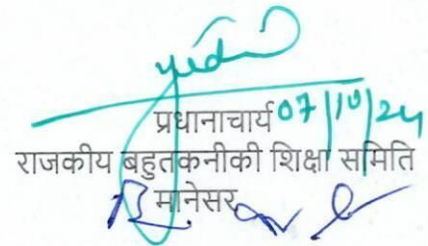 प्रधानाचार्य 07/10/24
राजकीय बहुतकनीकी शिक्षा समिति
मानेसर